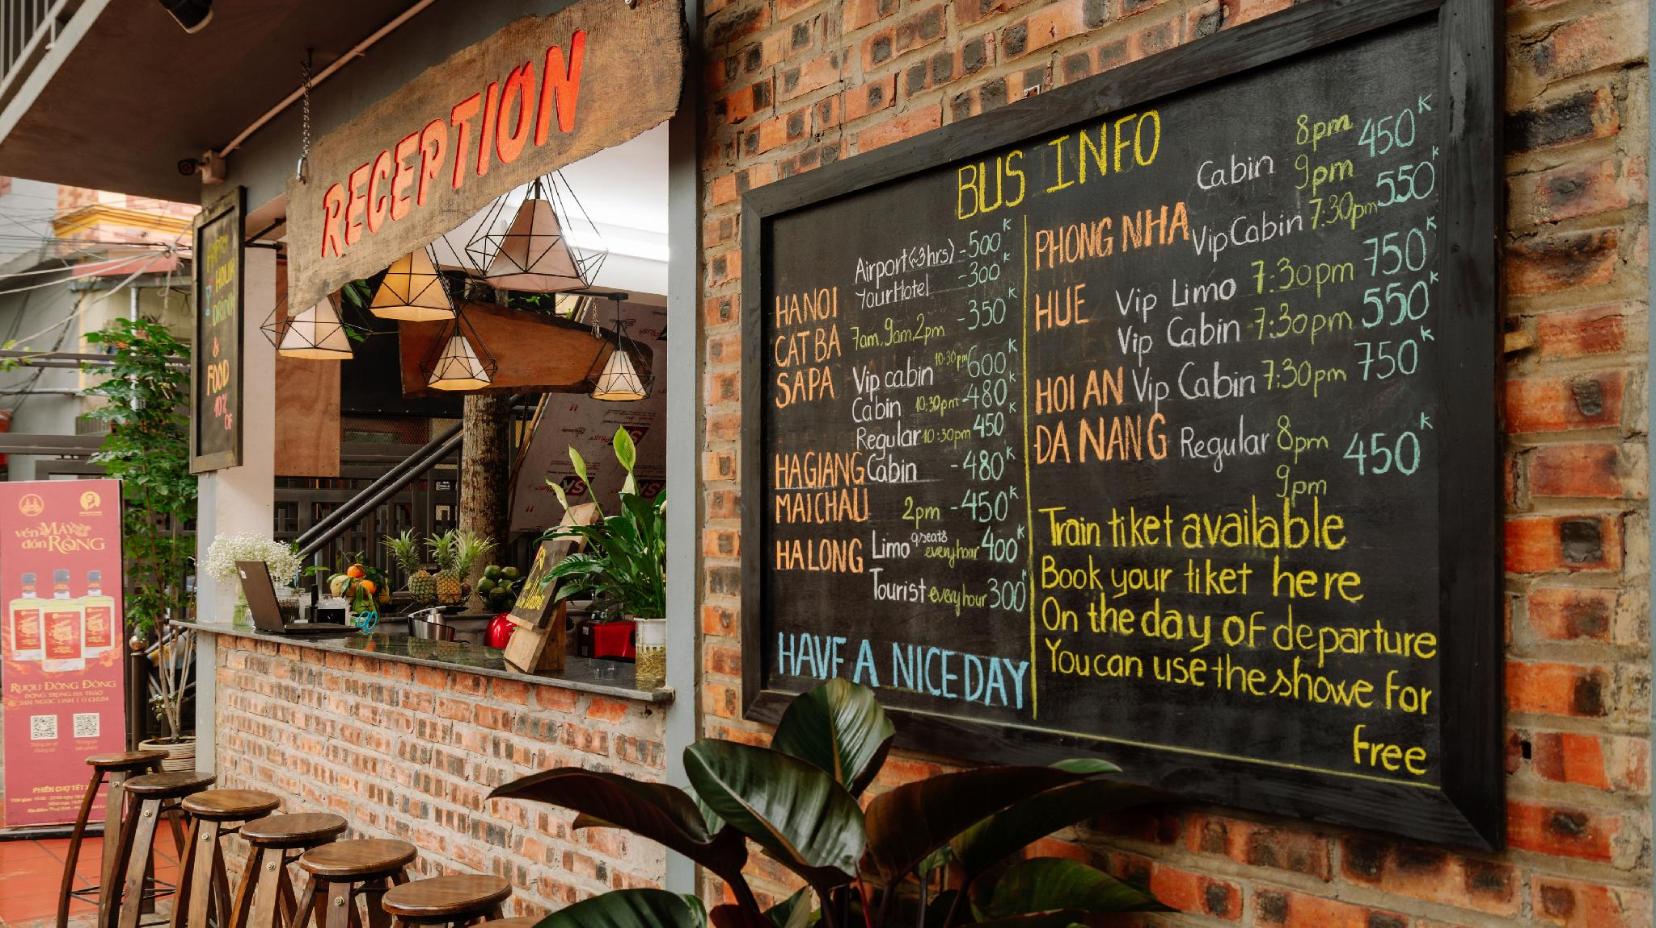 RECEPTION
HAPPY
HOUR
DRINK
&
FOOD
10%
OF
vén MÂY
đón RỒNG
RƯỢU ĐÒNG ĐÒNG
BUS INFO
HANOI Airport(~3hrs) -500K
Your Hotel -300K
CAT BA 7am, 9am, 2pm -350K
SAPA Vip cabin 10:30pm 600K
Cabin 10:30pm -480K
Regular 10:30pm 450K
HAGIANG Cabin -480K
MAICHAU 2pm -450K
HALONG Limo 9 seats every hour 400K
Tourist every hour 300K
HAVE A NICE DAY
PHONG NHA Cabin 8pm 450K
9pm
Vip Cabin 7:30pm 550K
HUE Vip Limo 7:30pm 750K
Vip Cabin -7:30pm 550K
HOI AN Vip Cabin 7:30pm 750K
DA NANG Regular 8pm 450K
9pm
Train tiket available
Book your tiket here
On the day of departure
You can use the showe for
free